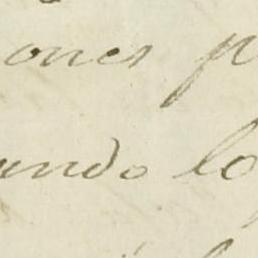 ones p
undo lo